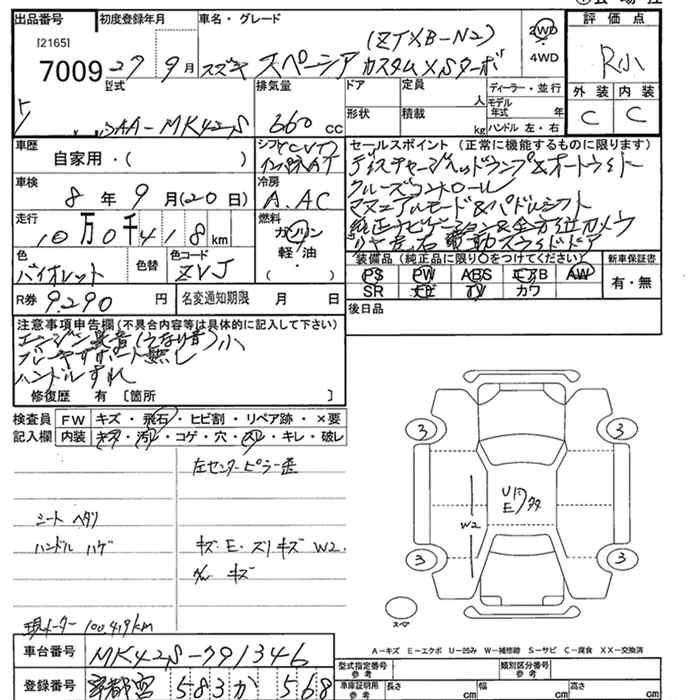 出品番号 初度登録年月 車名・グレード 評価点
[2165]
7009 27 9月 スズキ スペーシア カスタムXSターボ
(ZTXB-N2)
2WD
4WD
R小
型式 排気量 ドア 定員 人 ディーラー・並行 外装 内装
DAA-MK42S 660 cc 形状 積載 kg モデル年式 年 C C
ハンドル 左・右
車歴 シフト セールスポイント (正常に機能するものに限ります)
自家用・( ) CVT ディスチャージヘッドランプ&オートライト
インパネAT クルーズコントロール
車検 冷房 マニュアルモード&パドルシフト
8年 9月(20日) A.AC 純正ナビゲーション&全方位カメラ
走行 燃料 リヤ左右電動スライドドア
10万0千418km ガソリン
軽・油
( )
色 色替 色コード 装備品 (純正品に限り○をつけてください) 新車保証書
バイオレット ZVJ PS PW ABS エアB AW 有・無
SR ナビ TV カワ
R券 9.290 円 名変通知期限 月 日 後日品
注意事項申告欄 (不具合内容等は具体的に記入して下さい)
エンジン異音(うなり音)小
ブレーキサポート無し
ハンドルすれ
修復歴 有 〔箇所 〕
検査員 FW キズ・飛石・ヒビ割・リペア跡・×要
記入欄 内装 キズ・汚レ・コゲ・穴・スレ・キレ・破レ
左センターピラー歪
シート ヘタリ
ハンドル ハゲ キズ・E・スリキズ W2.
キズ
現メーター 100,419km
3 3
U
E
W2
3 3
スペア
A-キズ E-エクボ U-凹み W-補修跡 S-サビ C-腐食 XX-交換済
車台番号 MK42S-791346 型式指定番号 参考 類別区分番号 参考
登録番号 宇都宮 583か 568 車庫証明用 参考 長さ cm 幅 cm 高さ cm